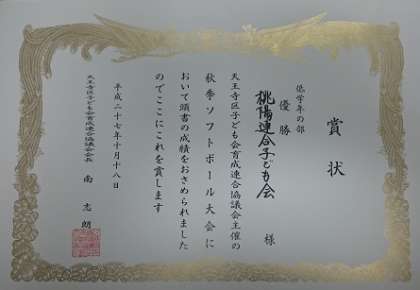 賞状
低学年の部
優勝
桃陽連合子ども会 様
天王寺区子ども会育成連合協議会主催の
秋季ソフトボール大会に
おいて頭書の成績をおさめられました
のでここにこれを賞します
平成二十七年十月十八日
天王寺区子ども会育成連合協議会会長 南 志朗